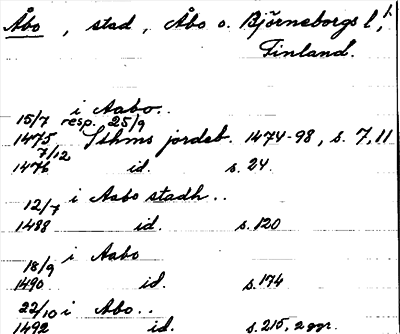 Åbo, stad, Åbo o. Björneborgs l,
Finland.
i Aabo..
15/7 resp. 25/9
1475 Sthms jordeb. 1474-98, s. 7, 11
7/12
1476 id. s. 24.
12/7 i Aabo stadh..
1488 id. s. 120
18/9 i Aabo
1490 id. s. 174
22/10 i Abo..
1492 id. s. 215, 2 ggr.